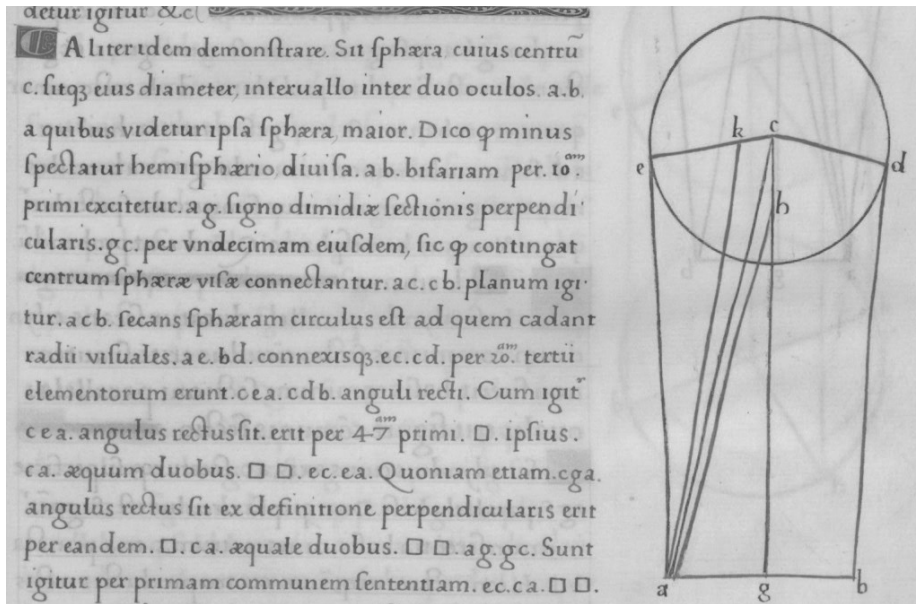 detur igitur &c(
Aliter idem demonſtrare. Sit ſphæra cuius centrũ
c. ſitqꝫ eius diameter, interuallo inter duo oculos. a.b.
a quibus videtur ipſa ſphæra, maior. Dico ꝙ minus
ſpectatur hemiſphærio, diuiſa. a b. bifariam per. 10.ᵃᵐ
primi excitetur. a g. ſigno dimidiæ ſectionis perpendi
cularis. g c. per vndecimam eiuſdem, ſic ꝙ contingat
centrum ſphæræ viſæ connectantur. a c. c b. planum igi
tur. a c b. ſecans ſphæram circulus eſt ad quem cadant
radii viſuales. a e. bd. connexisqꝫ. ec. c d. per 20.ᵃᵐ tertii
elementorum erunt. c e a. c d b. anguli recti. Cum igitʳ
c e a. angulus rectus ſit. erit per 47ᵃᵐ primi. □. ipſius.
ca. æquum duobus. □ □. ec. ea. Quoniam etiam. cga.
angulus rectus ſit ex definitione perpendicularis erit
per eandem. □. c a. æquale duobus. □ □. a g. gc. Sunt
igitur per primam communem ſententiam. ec. c a. □ □.
k c
e d
h
a g b